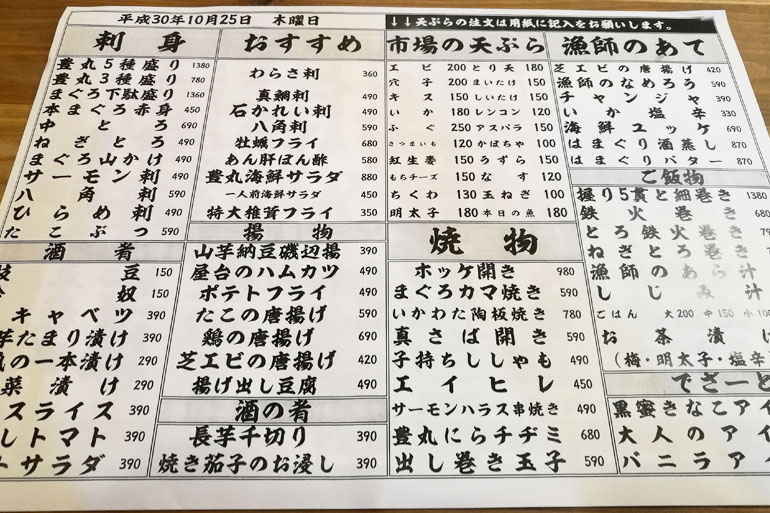 平成30年10月25日 木曜日
↓↓天ぷらの注文は用紙に記入をお願いします。
刺身
豊丸5種盛り 1380
豊丸3種盛り 780
まぐろ下駄盛り 1360
本まぐろ赤身 450
中とろ 690
ねぎとろ 490
まぐろ山かけ 490
サーモン刺 490
八角刺 590
ひらめ刺 490
たこぶつ 590
酒肴
豆 150
奴 150
キャベツ 390
芋たまり漬け 390
の一本漬け 290
菜漬け 290
スライス 390
しトマト 390
トサラダ 390
おすすめ
わらさ刺 360
真鯛刺 490
石かれい刺 490
八角刺 590
牡蠣フライ 680
あん肝ぽん酢 580
豊丸海鮮サラダ 880
一人前海鮮サラダ 450
特大椎茸フライ 350
揚物
山芋納豆磯辺揚 390
屋台のハムカツ 490
ポテトフライ 490
たこの唐揚げ 590
鶏の唐揚げ 690
芝エビの唐揚げ 420
揚げ出し豆腐 490
酒の肴
長芋千切り 390
焼き茄子のお浸し 390
市場の天ぷら
エビ 200 とり天 180
穴子 200 まいたけ 150
キス 150 しいたけ 150
いか 180 レンコン 120
ふぐ 250 アスパラ 150
さつまいも 120 かぼちゃ 100
紅生姜 150 うずら 150
もちチーズ 150 なす 120
ちくわ 130 玉ねぎ 100
明太子 180 本日の魚 180
焼物
ホッケ開き 980
まぐろカマ焼き 590
いかわた陶板焼き 780
真さば開き 590
子持ちししゃも 490
エイヒレ 450
サーモンハラス串焼き 490
豊丸にらチヂミ 680
出し巻き玉子 590
漁師のあて
芝エビの唐揚げ 420
漁師のなめろう 590
チャンジャ 390
いか塩辛 330
海鮮ユッケ 690
はまぐり酒蒸し 870
はまぐりバター 870
ご飯物
握り5貫と細巻き 1380
鉄火巻き 680
とろ鉄火巻き
ねぎとろ巻き
漁師のあら汁
しじみ汁
ごはん 大200 中150 小
お茶漬け
(梅・明太子・塩辛
でざーと
黒蜜きなこアイ
大人のアイ
バニラアイ